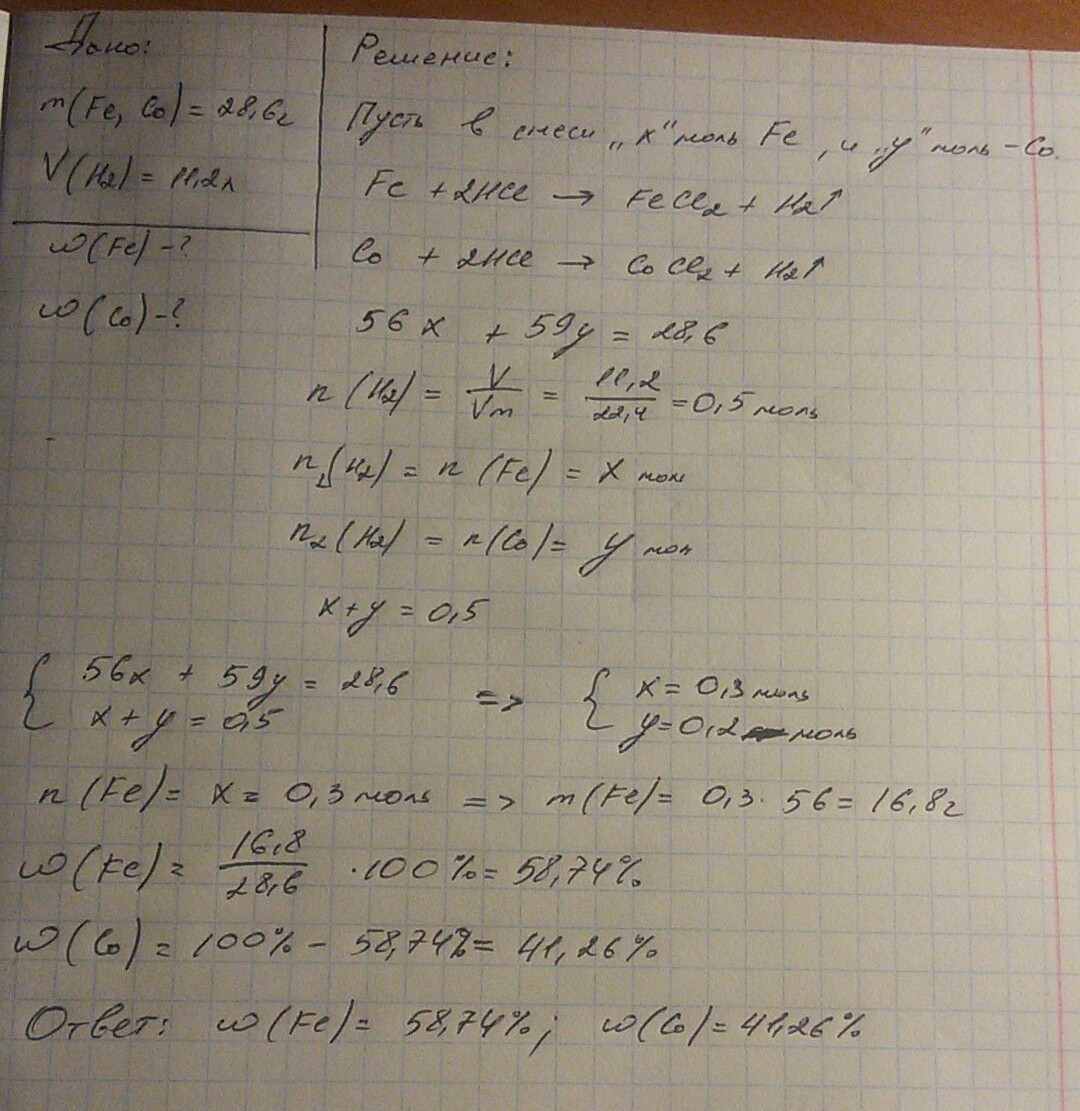 Дано:
m(Fe, Co) = 28,6г
V(H2) = 11,2л
ω(Fe) - ?
ω(Co) - ?
Решение:
Пусть в смеси „x" моль Fe, и „y" моль - Co.
Fe + 2HCl → FeCl2 + H2↑
Co + 2HCl → CoCl2 + H2↑
56x + 59y = 28,6
n(H2) = V/Vm = 11,2/22,4 = 0,5 моль
n1(H2) = n(Fe) = x мол
n2(H2) = n(Co) = y мол
x + y = 0,5
{ 56x + 59y = 28,6 => { x = 0,3 моль
x + y = 0,5 y = 0,2 моль
n(Fe) = x = 0,3 моль => m(Fe) = 0,3 · 56 = 16,8г
ω(Fe) = 16,8/28,6 · 100% = 58,74%
ω(Co) = 100% - 58,74% = 41,26%
Ответ: ω(Fe) = 58,74%; ω(Co) = 41,26%